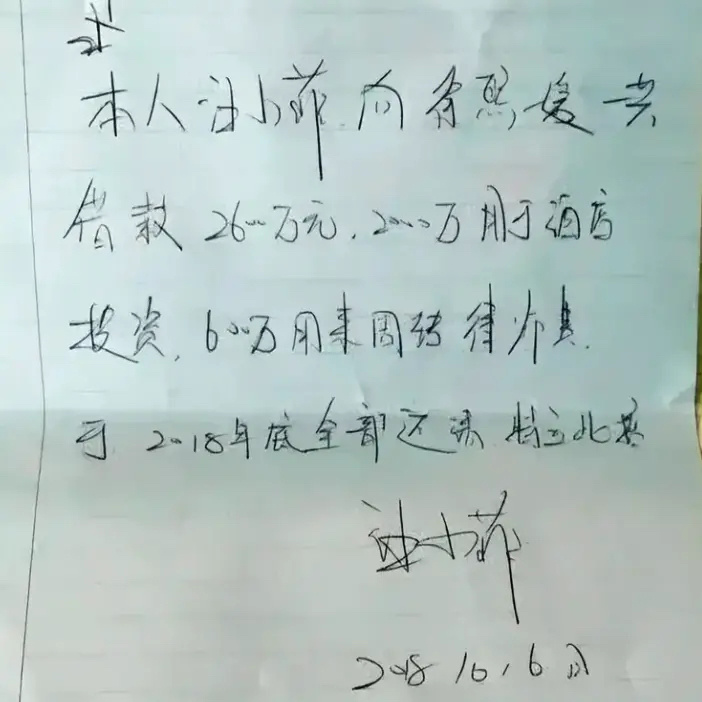 本人汪小菲向徐熙媛共
借款2600万元,2000万用于酒店
投资,600万用来周转律师费.
于2018年底全部还清 特立此
汪小菲
2018.10.6日